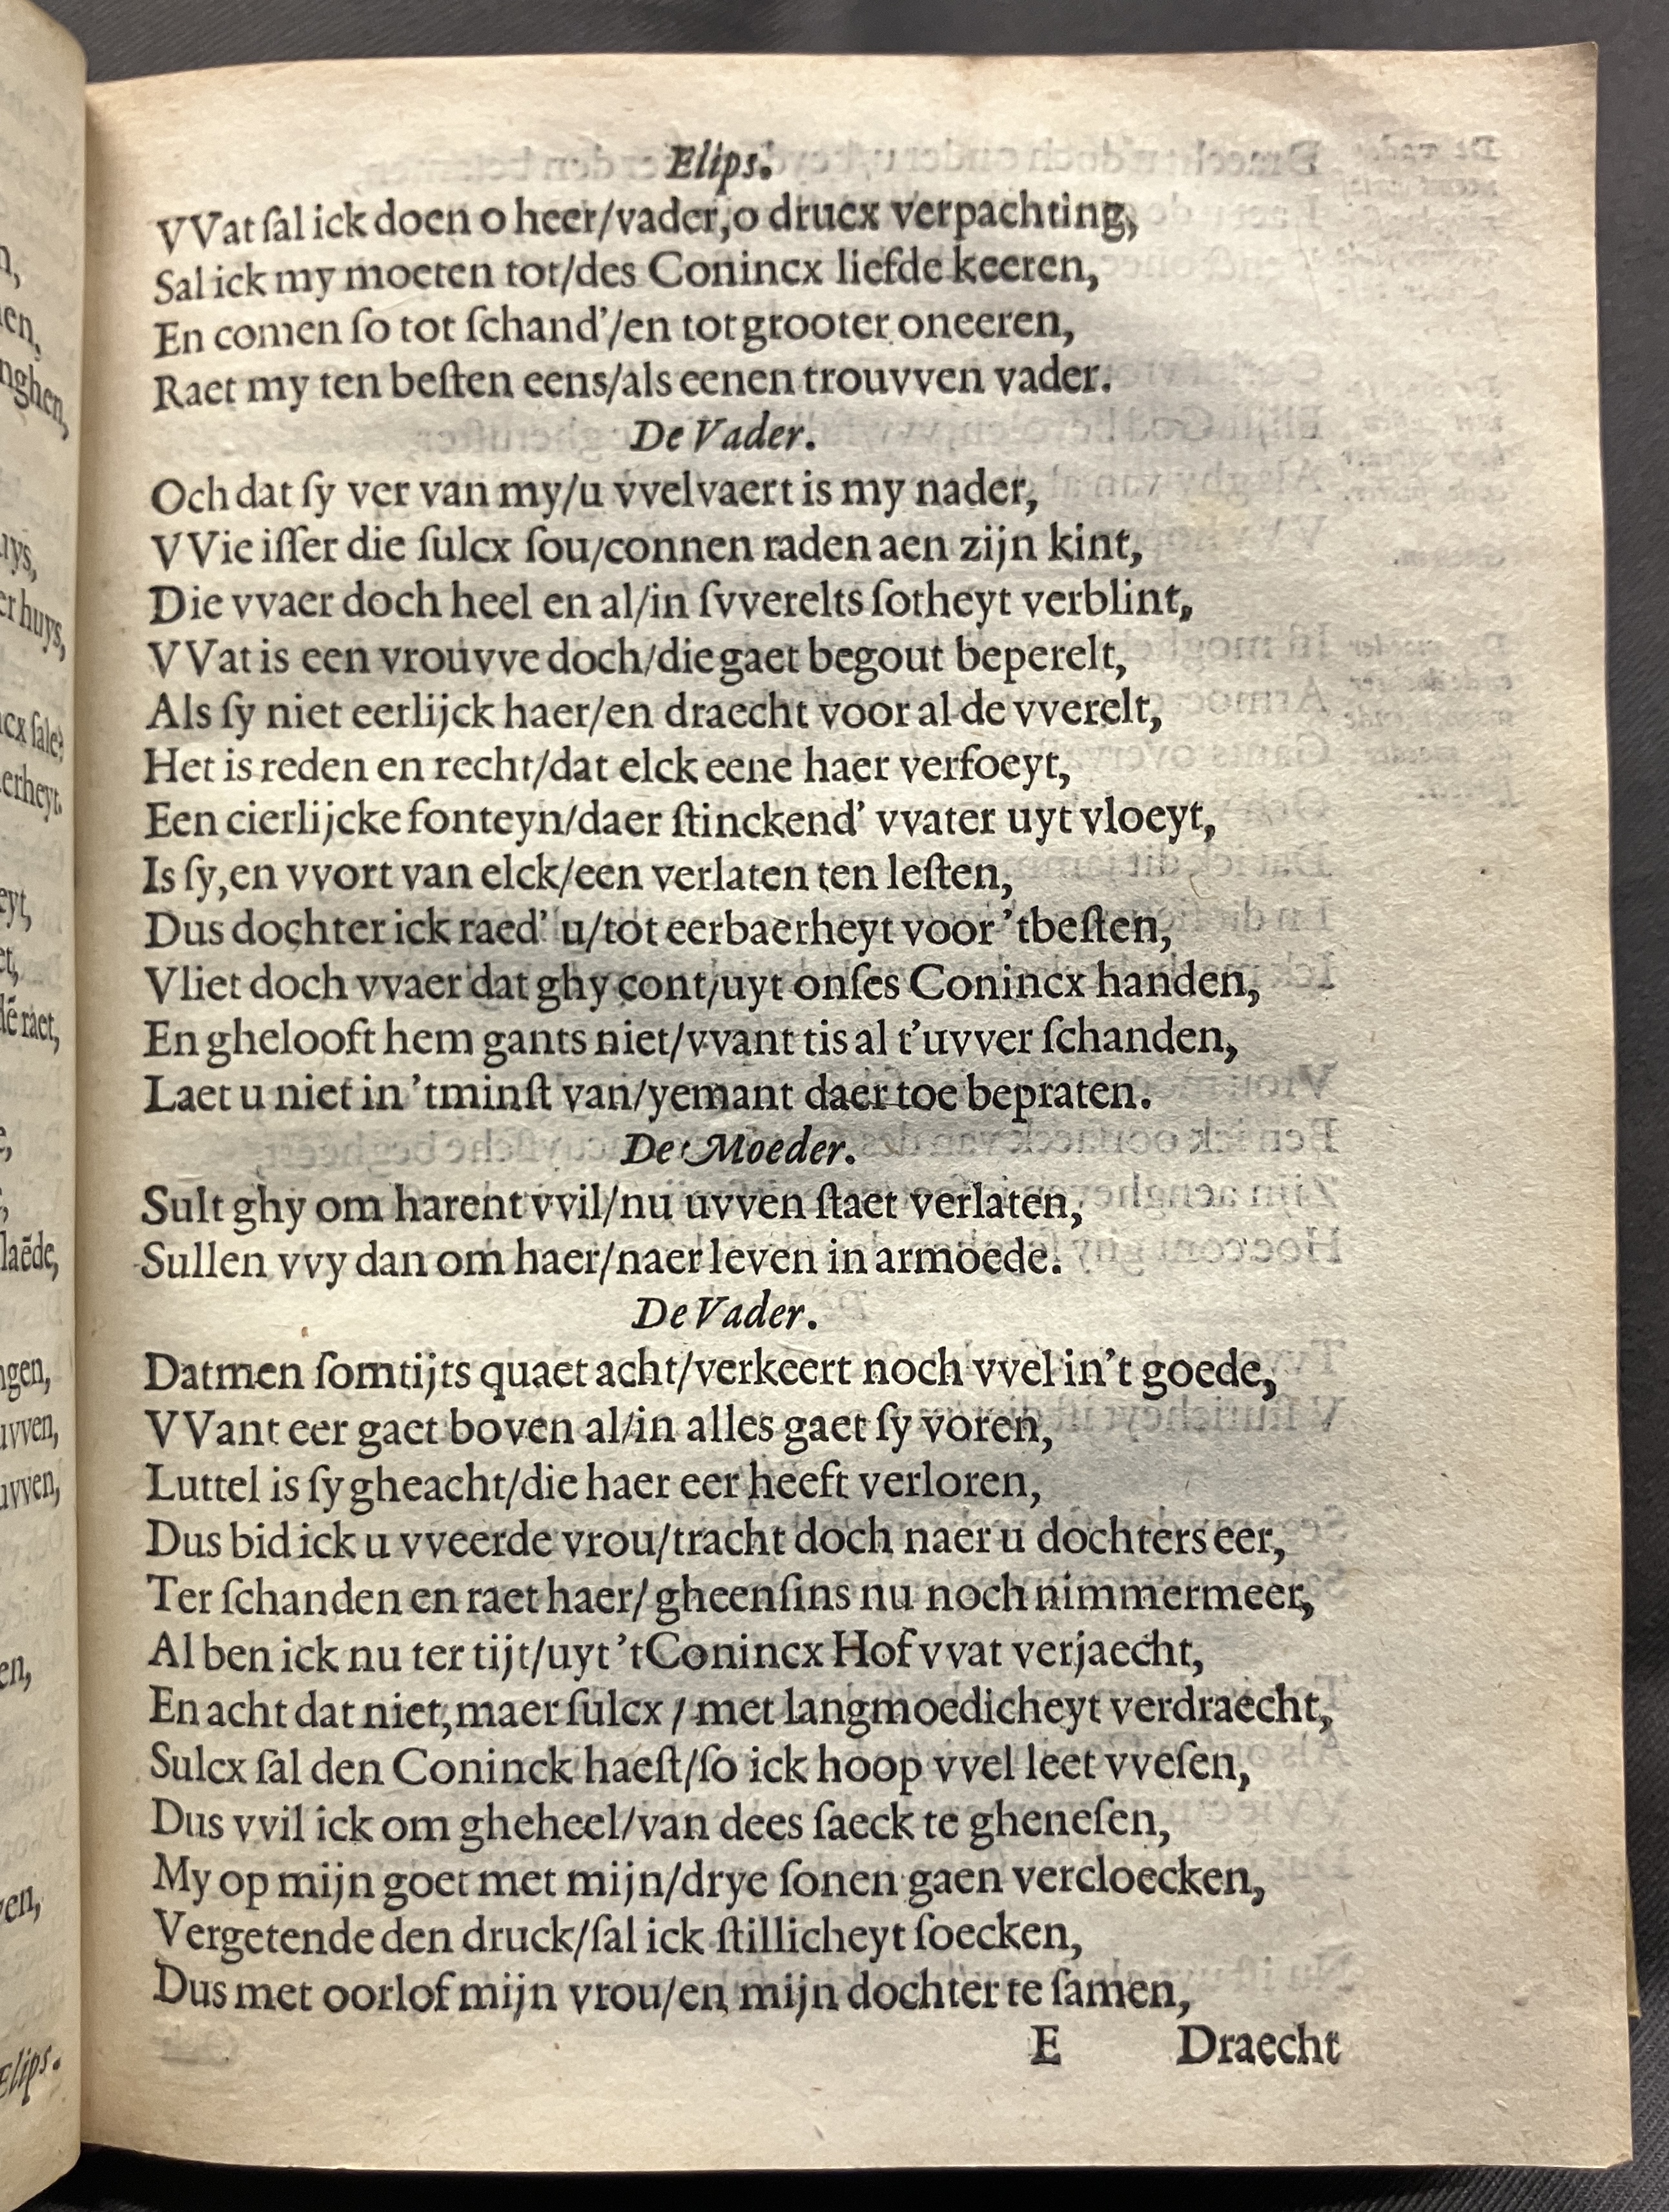 Elips.
VVat ſal ick doen o heer/vader,o drucx verpachting,
Sal ick my moeten tot/des Conincx liefde keeren,
En comen ſo tot ſchand'/en tot grooter oneeren,
Raet my ten beſten eens/als eenen trouvven vader.
De Vader.
Och dat ſy ver van my/u vvelvaert is my nader,
VVie iſſer die ſulcx ſou/connen raden aen zijn kint,
Die vvaer doch heel en al/in ſvverelts ſotheyt verblint,
VVat is een vrouvve doch/die gaet begout beperelt,
Als ſy niet eerlijck haer/en draecht voor al de vverelt,
Het is reden en recht/dat elck eene haer verfoeyt,
Een cierlijcke fonteyn/daer ſtinckend' vvater uyt vloeyt,
Is ſy,en vvort van elck/een verlaten ten leſten,
Dus dochter ick raed' u/tot eerbaerheyt voor 'tbeſten,
Vliet doch vvaer dat ghy cont/uyt onſes Conincx handen,
En ghelooft hem gants niet/vvant tis al t'uvver ſchanden,
Laet u niet in 'tminſt van/yemant daer toe bepraten.
De Moeder.
Sult ghy om harent vvil/nu uvven ſtaet verlaten,
Sullen vvy dan om haer/naer leven in armoede.
De Vader.
Datmen ſomtijts quaet acht/verkeert noch vvel in't goede,
VVant eer gaet boven al/in alles gaet ſy voren,
Luttel is ſy gheacht/die haer eer heeft verloren,
Dus bid ick u vveerde vrou/tracht doch naer u dochters eer,
Ter ſchanden en raet haer/gheenſins nu noch nimmermeer,
Al ben ick nu ter tijt/uyt 'tConincx Hof vvat verjaecht,
En acht dat niet,maer ſulcx/met langmoedicheyt verdraecht,
Sulcx ſal den Coninck haeſt/ſo ick hoop vvel leet vveſen,
Dus vvil ick om gheheel/van dees ſaeck te gheneſen,
My op mijn goet met mijn/drye ſonen gaen vercloecken,
Vergetende den druck/ſal ick ſtillicheyt ſoecken,
Dus met oorlof mijn vrou/en mijn dochter te ſamen,
E Draecht